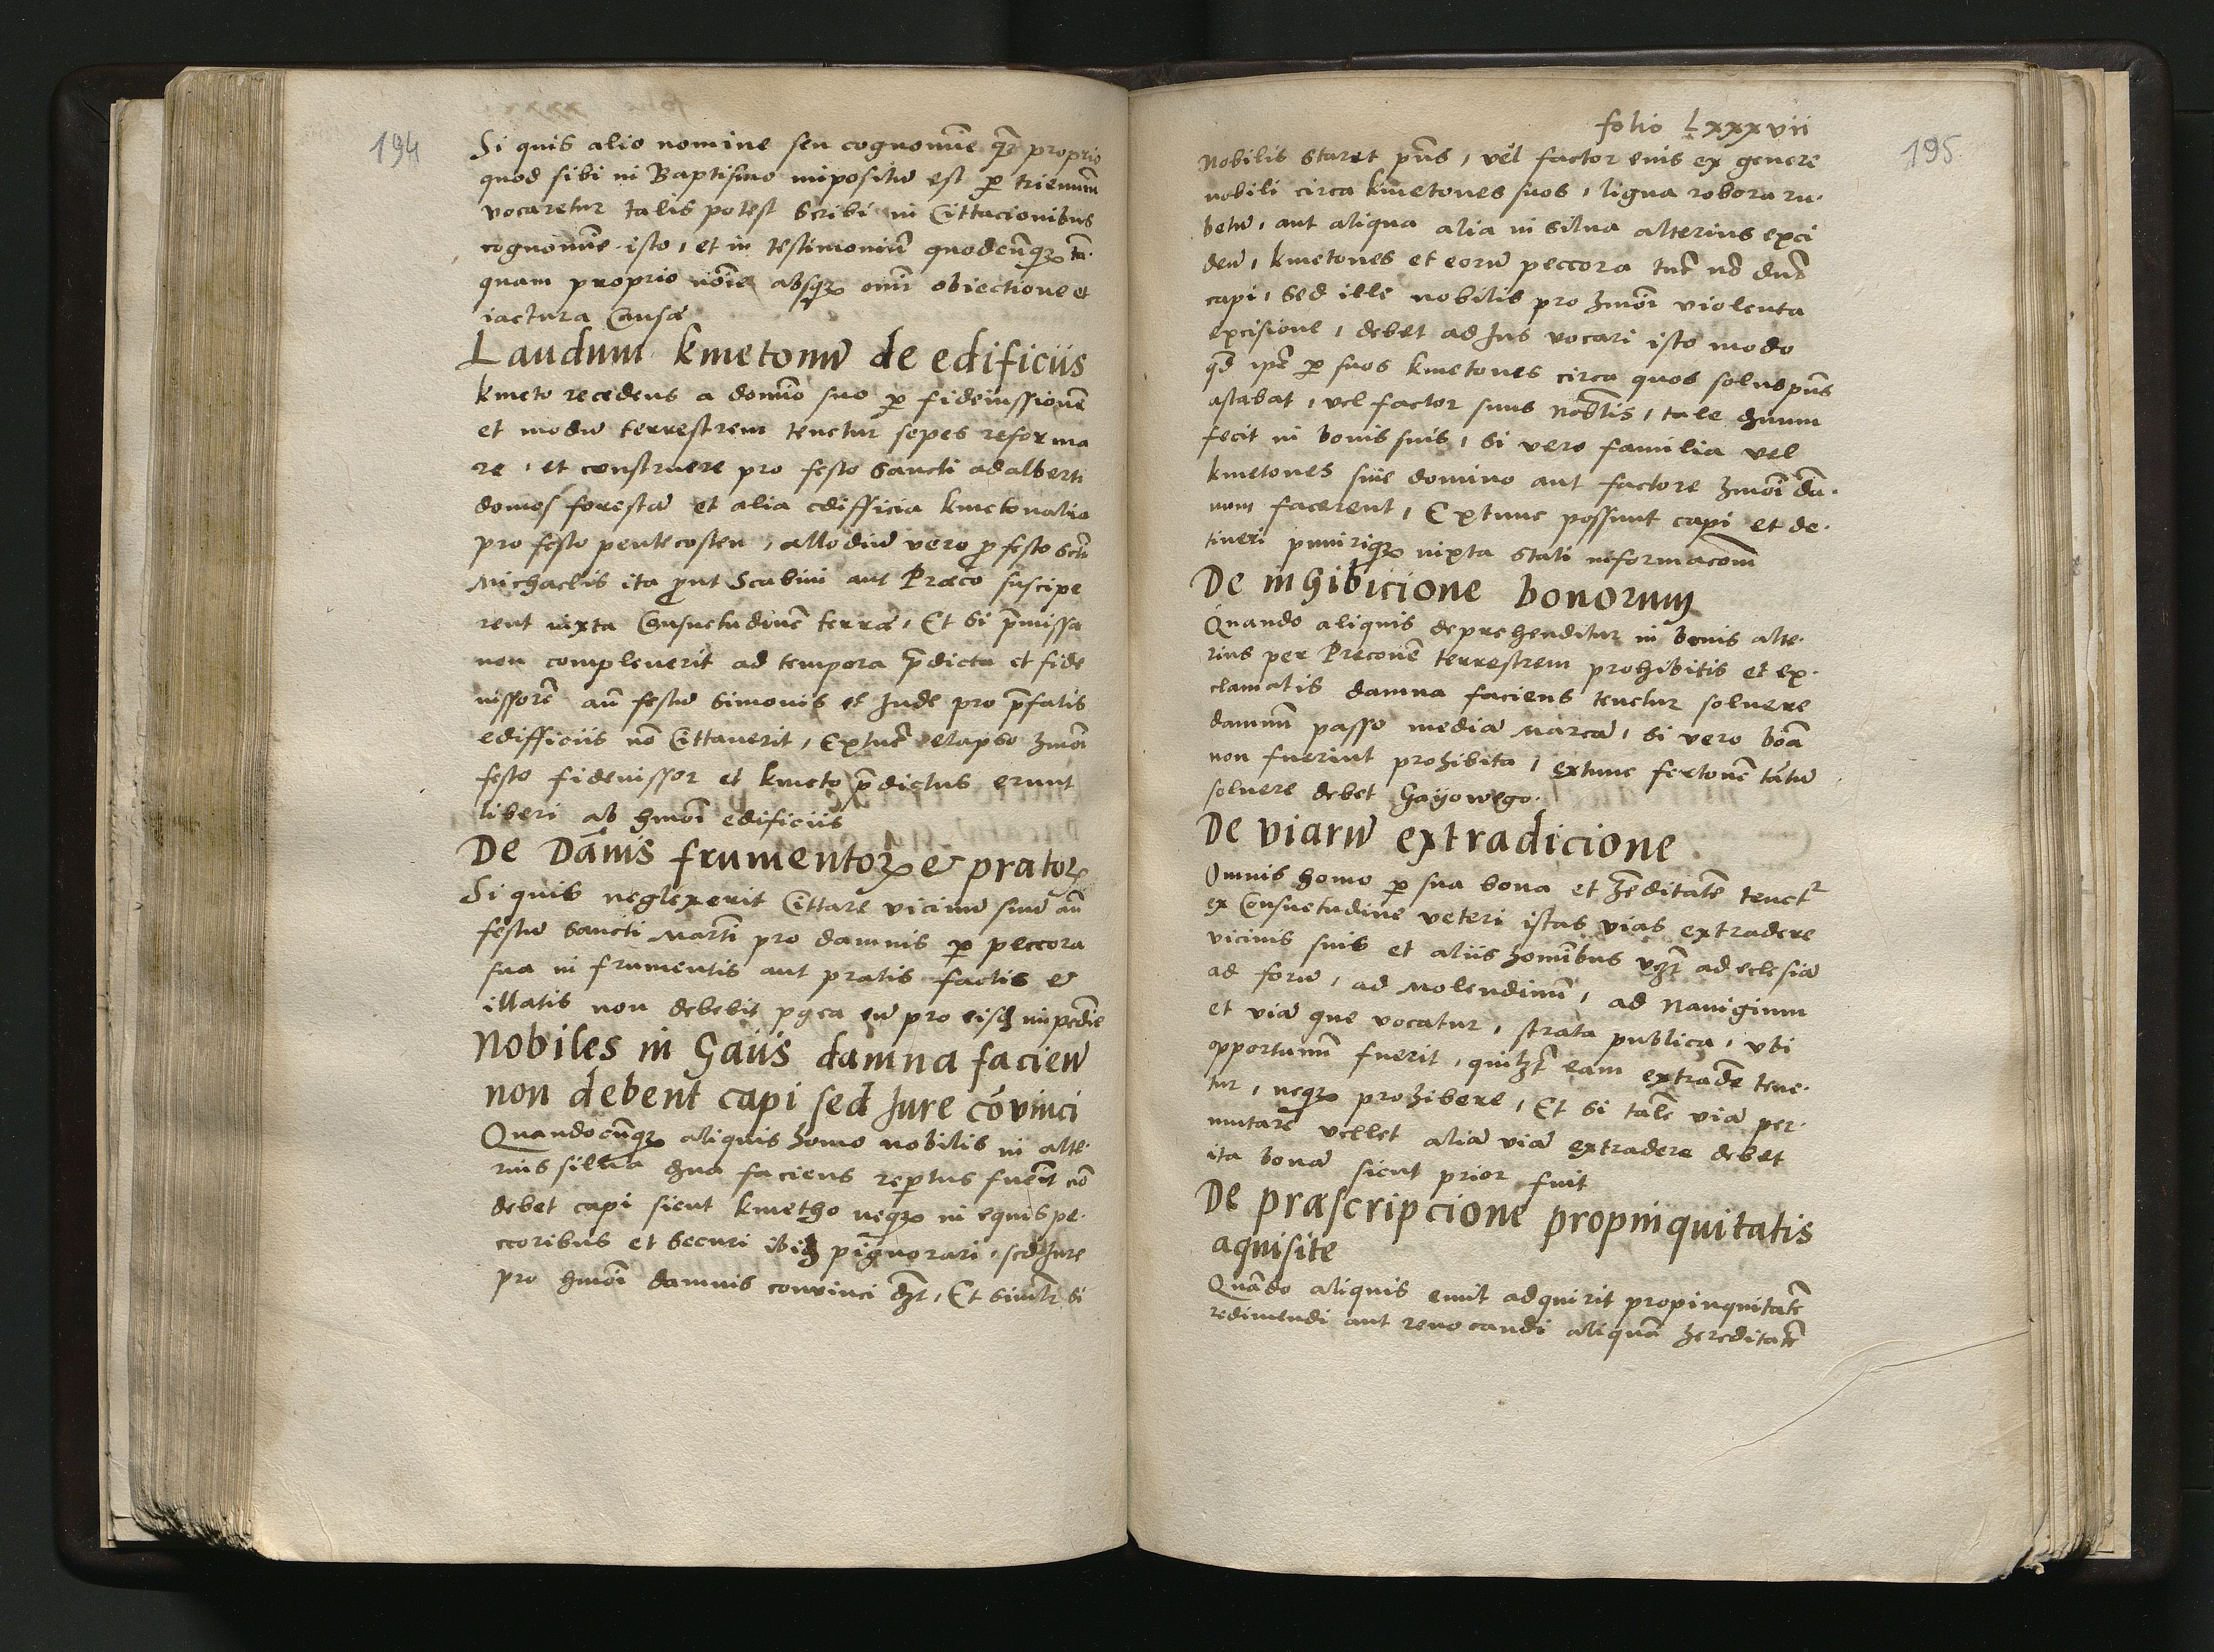 194
Si quis alio nomine seu cognomīe q̄z proprio
quod sibi in Baptismo impositū est p trieniūm
vocaretur talis potest Scribi in Cittacionibus
cognomīe isto, et in testimoniū quodcūqz tā-
quam proprio nōīe absqz omī obiectione et
iactura Causæ
Laudum kmetonū de edificiis
kmeto recedens a domīo suo p fideiussionē
et modū terrestrem tenetur sepes reforma
re, et construere pro festo Sancti adalberti
domos forestā et alia edifficia kmetonalia
pro festo pentecosten, allodiū vero p festo Scti
Michaelis ita put Scabini aut Præco suscipe
rent iuxta Consuetudinē terræ, Et Si pmissa
non compleuerit ad tempora pdicta et fide
iussorē añ festū Simonis et Jude pro pfatis
edifficiis nō Cittauerit, Extūc elapso hmōi
festo fideiussor et kmeto pdictus erunt
liberi ab hmōi edificiis
De Dānis frumentoꝝ et pratoꝝ
Si quis neglexerit Cittare vicinū suū añ
festū Sancti Martī pro damnis p peccora
sua in frumentis aut pratis factis et
illatis non debebit pgea eū pro eisdē impedīe
Nobiles in Gaiis damna facien̄
non debent capi sed Jure cōvinci
Quandocūqz aliquis homo nobilis in alte-
rius silua dna faciens repertus fuerit nō
debet capi sicut kmetho neqz in equis pe-
ccoribus et Securi ibidē pignorari, sed Jure
pro hmōi damnis convinci dzt, Et Similr si
folio Lxxxvii
195
Nobilis staret pñs, vel factor eius ex genere
nobili circa kmetones suos, ligna robora ru-
betū, aut aliqua alia in Silua alterius exci
den̄, kmetones et eorū peccora tūc nō dnt
capi, Sed ille nobilis pro hmōi violenta
excisione, debet ad Jus vocari isto modo
qd ipe p suos kmetones circa quos solus pñs
astabat, vel factor suus nobilis, tale dnum
fecit in bonis suis, Si vero familia vel
kmetones sine domino aut factore hmōi da-
num facerent, Extunc possunt capi et de-
tineri puniriqz iuxta Stati informacōm
De inhibicione bonorum
Quando aliquis deprehenditur in bonis alte-
rius per Preconē terrestrem prohibitis et ex-
clamatis damna faciens tenetur soluere
damnū passo mediā Marcā, Si vero bōa
non fuerint prohibita, extunc fertonē tātū
soluere debet Gayowego.
De viarū extradicione
Omnis homo p sua bona et hæditatē tenet2
ex Consuetudine veteri istas vias extradere
vicinis suis et aliis hominibus vzt ad eclesiā
ad forū, ad Molendinū, ad Nauigium
et viā que vocatur, strata publica, vbi
opportunū fuerit, quilzt eam extradē tene-
tur, neqz prohibere, Et Si talē viā per-
mutare vellet aliā viā extradere debet
ita bonā sicut prior fuit
De præscripcione propinquitatis
aquisite
Quādo aliquis emit adquirit propinquitatē
redimendi aut reuocandi aliquā hereditatē